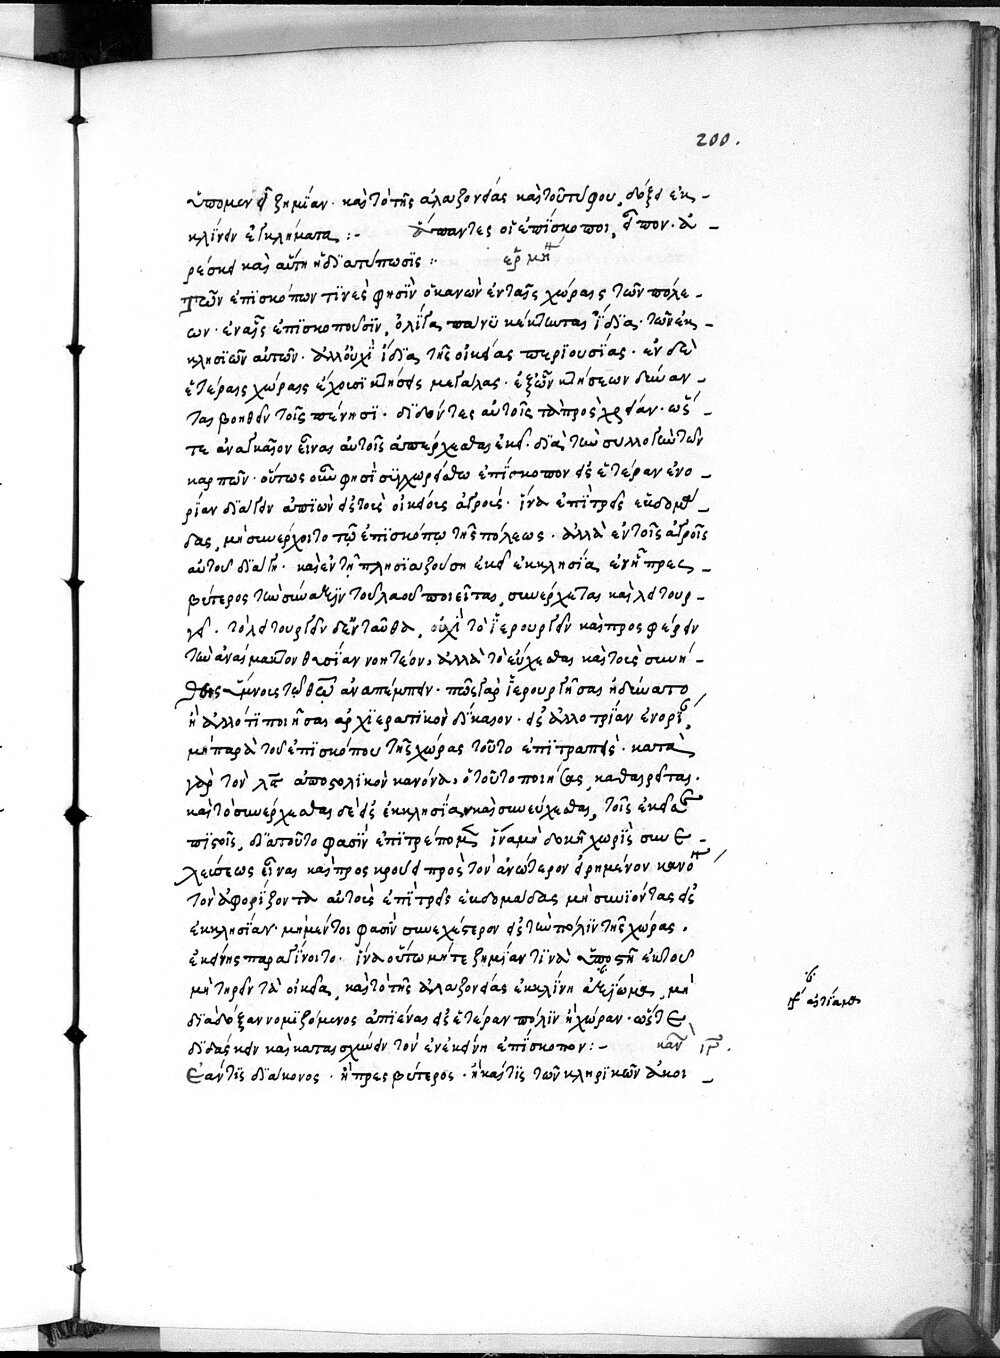 200.
ὑπομενεῖ ζημίαν· καὶ τὸ τῆς ἀλαζονείας καὶ τοῦ τύφου, δόξει ἐκ-
κλίνειν ἔγκλημα :- ἅπαντες οἱ ἐπίσκοποι, εἶπον· ἀ-
ρέσκει καὶ αὕτη ἡ διατύπωσις : ἑρμη
Τῶν ἐπισκόπων τινὲς φησὶν ὁ κανὼν ἐν ταῖς χώραις τῶν πόλε-
ων· ἐν αἷς ἐπισκοποῦσιν, ὀλίγα πάνυ κέκτηνται ἴδια· τῶν ἐκ-
κλησιῶν αὐτῶν· ἀλλ' οὐχὶ ἰδίᾳ τῆς οἰκείας περιουσίας· ἐν δὲ
ἑτέραις χώραις ἔχουσι κτήσεις μεγάλας· ἐξ ὧν κτήσεων δύναν-
ται βοηθεῖν τοῖς πένησι· διδόντες αὐτοῖς τὰ πρὸς χρείαν· ὥσ-
τε ἀναγκαῖον εἶναι αὐτοῖς ἀπέρχεσθαι ἐκεῖ· διὰ τὴν συλλογὴν τῶν
καρπῶν· οὕτως οὖν φησὶ συγχωρείσθω ἐπίσκοπον εἰς ἑτέραν ἐνο-
ρίαν διάγειν ἀπιὼν εἰς τοὺς οἰκείους ἀγροὺς· ἵνα ἐπὶ τρεῖς ἑβδομά-
δας, μὴ συνέρχοιτο τῷ ἐπισκόπῳ τῆς πόλεως· ἀλλὰ ἐν τοῖς ἀγροῖς
αὐτοῦ διάγῃ· καὶ ἐν τῇ πλησιαζούσῃ ἐκεῖ ἐκκλησίᾳ, ἐν ᾗ πρεσ-
βύτερος τὴν σύναξιν τοῦ λαοῦ ποιεῖται, συνέρχεται καὶ λειτουρ-
γεῖ· τὸ λειτουργεῖν δὲ ἐνταῦθα, οὐχὶ τὸ ἱερουργεῖν καὶ προσφέρειν
τὴν ἀναίμακτον θυσίαν νοητέον, ἀλλὰ τὸ εὔχεσθαι καὶ τοὺς συνή-
θεις ὕμνους τῷ θεῷ ἀναπέμπειν· πῶς γὰρ ἱερουργῆσαι ἠδύνατο
ἢ ἄλλο τι ποιῆσαι ἀρχιερατικὸν δίκαιον· εἰς ἀλλοτρίαν ἐνορί
μὴ παρὰ τοῦ ἐπισκόπου τῆς χώρας τοῦτο ἐπιτραπεὶς· κατὰ
γὰρ τὸν λε ἀποστολικὸν κανόνα, ὁ τοῦτο ποιήσας, καθαιρεῖται·
καὶ τὸ συνέρχεσθαι δὲ εἰς ἐκκλησίαν καὶ συνεύχεσθαι, τοῖς ἐκεῖσε
πιστοῖς, διὰ τοῦτο φασὶν ἐπιτρέπομεν ἵνα μὴ δοκῇ χωρὶς συνε-
λεύσεως εἶναι καὶ προσκρούει πρὸς τὸν ἀνώτερον εἰρημένον κανό
τὸν ἀφορίζοντα αὐτοὺς ἐπὶ τρεῖς ἑβδομάδας μὴ συνιόντας εἰς
ἐκκλησίαν· μὴ μέντοι φασὶν συνεχέστερον εἰς τὴν πόλιν τῆς χώρας·
ἐκείνης παραγίνοιτο· ἵνα οὕτω μήτε ζημίαν τινὰ ὑποστῇ ἐκ τοῦ
μὴ τηρεῖν τὰ οἰκεῖα, καὶ τὸ τῆς ἀλαζονείας ἐκκλίνῃ ἀξίωμα, μὴ
διὰ δόξαν νομιζόμενος ἀπιέναι εἰς ἑτέραν πόλιν ἢ χώραν· ὥστε
διδάσκειν καὶ καταισχύνειν τὸν ἐν ἐκείνῃ ἐπίσκοπον :- καν ιγ.
Ἐάν τις διάκονος· ἢ πρεσβύτερος· ἢ καί τις τῶν κληρικῶν ἀκοι-
αἰτίαμα